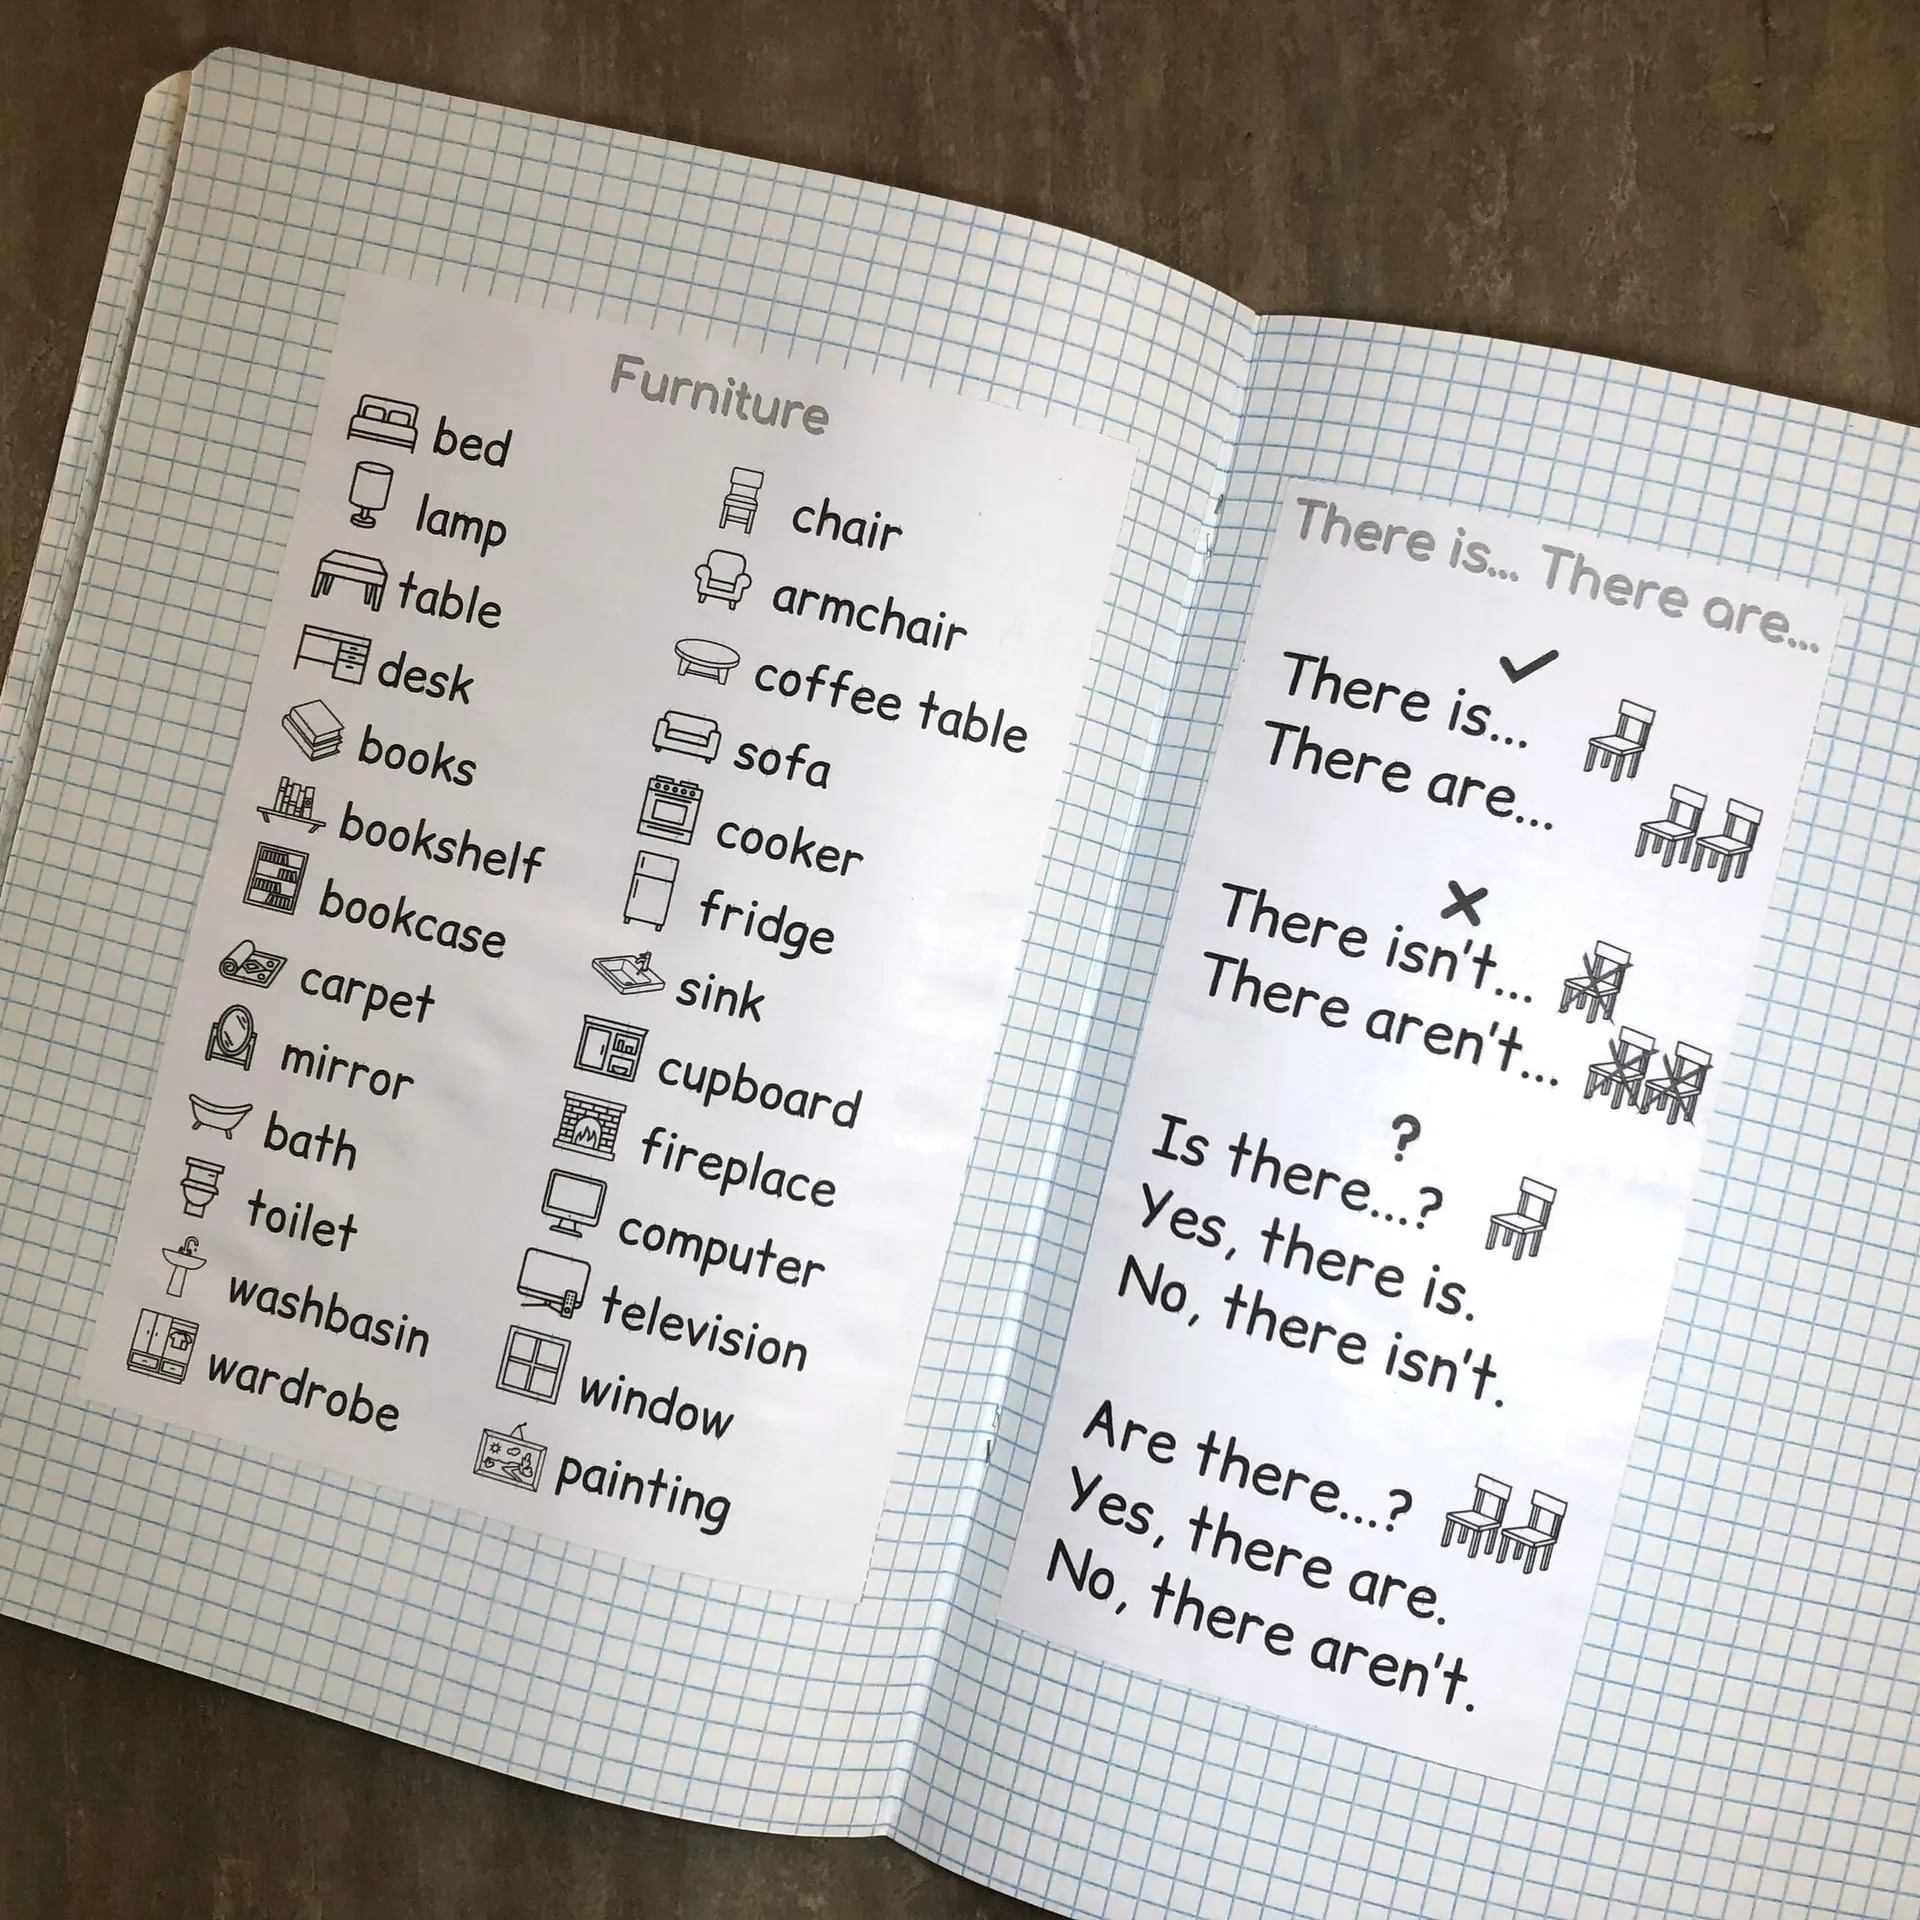 Furniture
bed
lamp
table
desk
books
bookshelf
bookcase
carpet
mirror
bath
toilet
washbasin
wardrobe
chair
armchair
coffee table
sofa
cooker
fridge
sink
cupboard
fireplace
computer
television
window
painting
There is... There are...
There is...
There are...
There isn't...
There aren't...
?
Is there...?
Yes, there is.
No, there isn't.
Are there...?
Yes, there are.
No, there aren't.